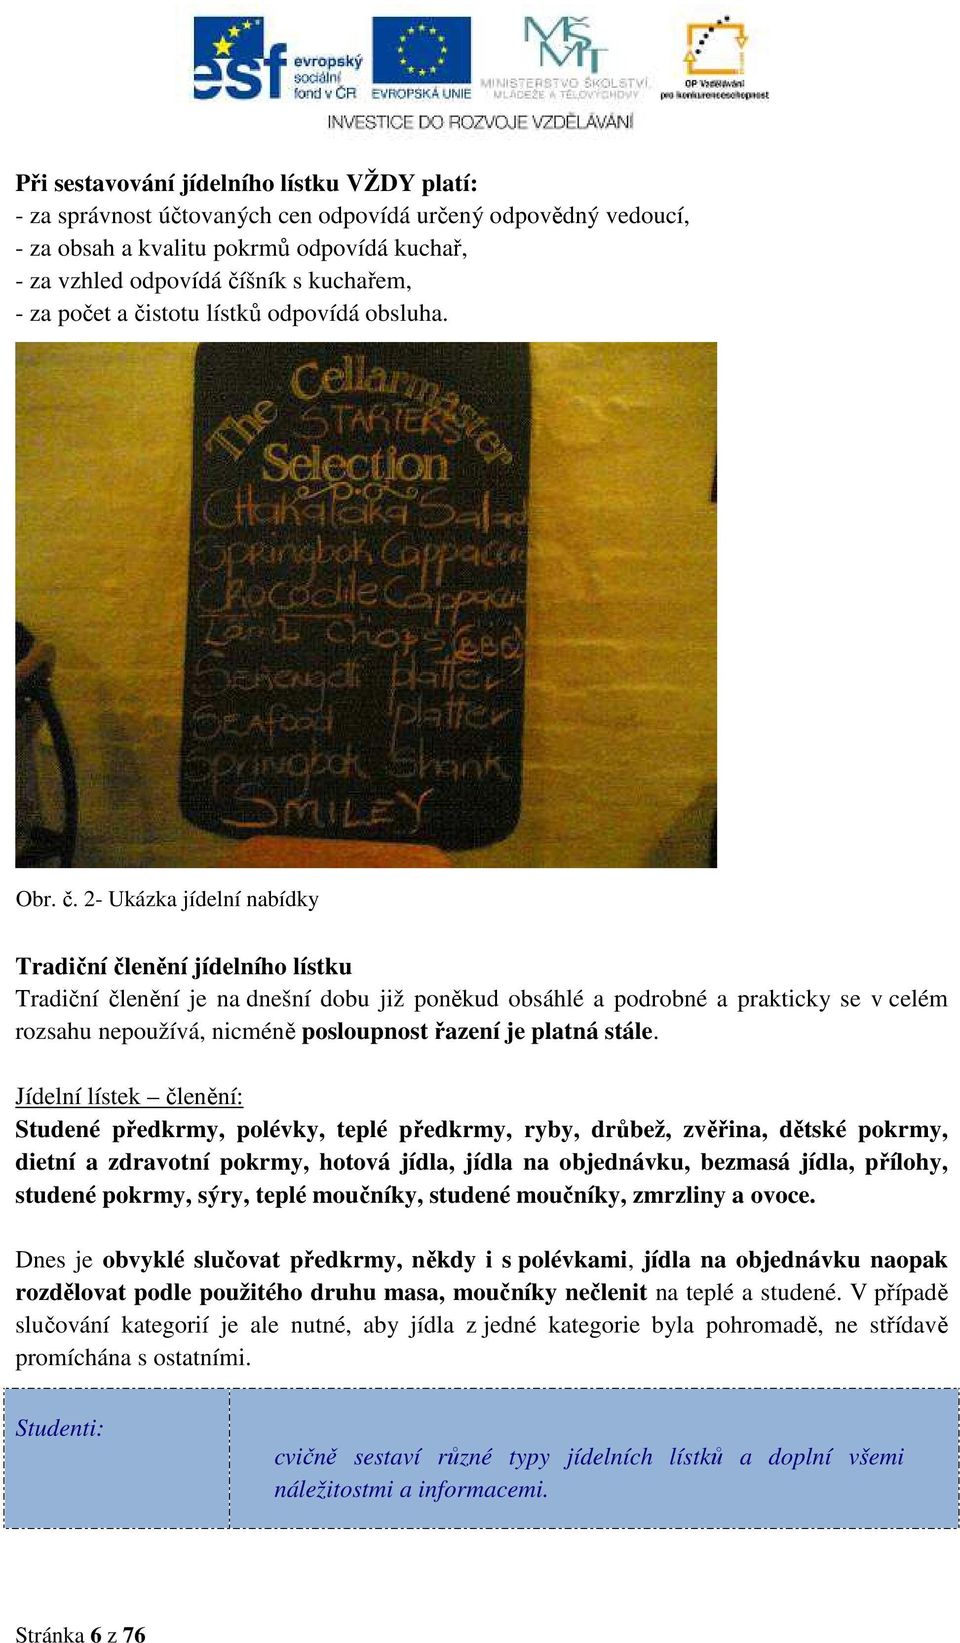 evropský
sociální
fond v ČR
EVROPSKÁ UNIE
MINISTERSTVO ŠKOLSTVÍ,
MLÁDEŽE A TĚLOVÝCHOVY
OP Vzdělávání
pro konkurenceschopnost
INVESTICE DO ROZVOJE VZDĚLÁVÁNÍ
Při sestavování jídelního lístku VŽDY platí:
- za správnost účtovaných cen odpovídá určený odpovědný vedoucí,
- za obsah a kvalitu pokrmů odpovídá kuchař,
- za vzhled odpovídá číšník s kuchařem,
- za počet a čistotu lístků odpovídá obsluha.
The Cellarmaster
STARTERS
Selection
Chakalaka Salad
Springbok Cappacci
Crocodile Cappacci
Lamb Chops (BBQ)
Serengeti platter
Seafood platter
Springbok Shank
SMILEY
Obr. č. 2- Ukázka jídelní nabídky
Tradiční členění jídelního lístku
Tradiční členění je na dnešní dobu již poněkud obsáhlé a podrobné a prakticky se v celém
rozsahu nepoužívá, nicméně posloupnost řazení je platná stále.
Jídelní lístek – členění:
Studené předkrmy, polévky, teplé předkrmy, ryby, drůbež, zvěřina, dětské pokrmy,
dietní a zdravotní pokrmy, hotová jídla, jídla na objednávku, bezmasá jídla, přílohy,
studené pokrmy, sýry, teplé moučníky, studené moučníky, zmrzliny a ovoce.
Dnes je obvyklé slučovat předkrmy, někdy i s polévkami, jídla na objednávku naopak
rozdělovat podle použitého druhu masa, moučníky nečlenit na teplé a studené. V případě
slučování kategorií je ale nutné, aby jídla z jedné kategorie byla pohromadě, ne střídavě
promíchána s ostatními.
Studenti:
cvičně sestaví různé typy jídelních lístků a doplní všemi
náležitostmi a informacemi.
Stránka 6 z 76